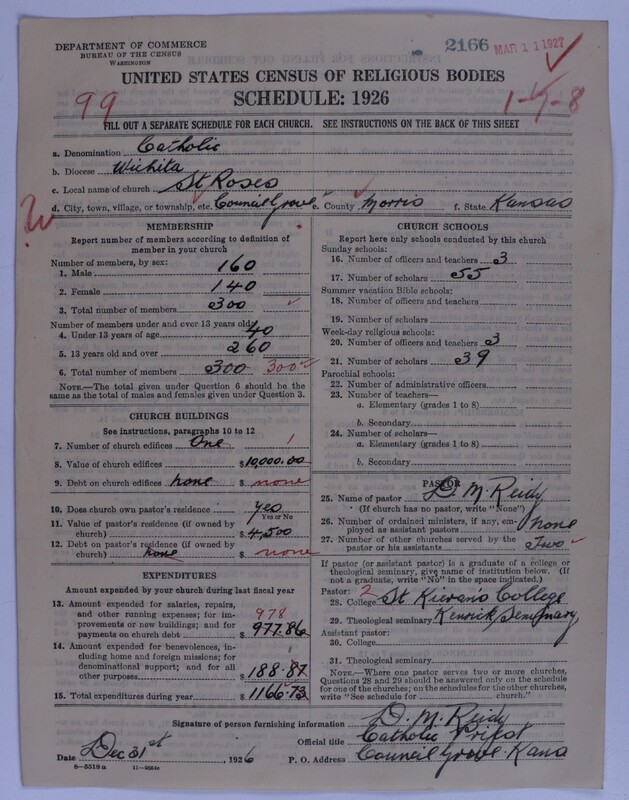 DEPARTMENT OF COMMERCE
BUREAU OF THE CENSUS
WASHINGTON
2166 MAR 11 1927
UNITED STATES CENSUS OF RELIGIOUS BODIES
SCHEDULE: 1926
99
FILL OUT A SEPARATE SCHEDULE FOR EACH CHURCH. SEE INSTRUCTIONS ON THE BACK OF THIS SHEET
a. Denomination Catholic
b. Diocese Wichita
c. Local name of church St Roses
d. City, town, village, or township, etc. Council Grove e. County Morris f. State Kansas
MEMBERSHIP
Report number of members according to definition of member in your church
Number of members, by sex:
1. Male 160
2. Female 140
3. Total number of members 300
Number of members under and over 13 years old:
4. Under 13 years of age 40
5. 13 years old and over 260
6. Total number of members 300 300
NOTE.—The total given under Question 6 should be the same as the total of males and females given under Question 3.
CHURCH BUILDINGS
See instructions, paragraphs 10 to 12
7. Number of church edifices One 1
8. Value of church edifices $10,000.00
9. Debt on church edifices none $ none
10. Does church own pastor's residence? yes
Yes or No
11. Value of pastor's residence (if owned by church) $4,500
12. Debt on pastor's residence (if owned by church) none $ none
EXPENDITURES
Amount expended by your church during last fiscal year
13. Amount expended for salaries, repairs, and other running expenses; for improvements or new buildings; and for payments on church debt 978 $ 977.86
14. Amount expended for benevolences, including home and foreign missions; for denominational support; and for all other purposes $ 188.87
15. Total expenditures during year $ 1166.73
CHURCH SCHOOLS
Report here only schools conducted by this church
Sunday schools:
16. Number of officers and teachers 3
17. Number of scholars 55
Summer vacation Bible schools:
18. Number of officers and teachers
19. Number of scholars
Week-day religious schools:
20. Number of officers and teachers 3
21. Number of scholars 39
Parochial schools:
22. Number of administrative officers
23. Number of teachers—
a. Elementary (grades 1 to 8)
b. Secondary
24. Number of scholars—
a. Elementary (grades 1 to 8)
b. Secondary
PASTOR
25. Name of pastor D. M. Reidy
(If church has no pastor, write "None")
26. Number of ordained ministers, if any, employed as assistant pastors none
27. Number of other churches served by the pastor or his assistants Two
If pastor (or assistant pastor) is a graduate of a college or theological seminary, give name of institution below. (If not a graduate, write "No" in the space indicated.)
Pastor: 2
28. College St Kierans College
29. Theological seminary Kenrick Seminary
Assistant pastor:
30. College
31. Theological seminary
NOTE.—Where one pastor serves two or more churches, Questions 28 and 29 should be answered only on the schedule for one of the churches; on the schedules for the other churches, write "See schedule for church."
Signature of person furnishing information D. M. Reidy
Official title Catholic Priest
Date Dec 31st, 1926 P. O. Address Council Grove Kans
8—5518a